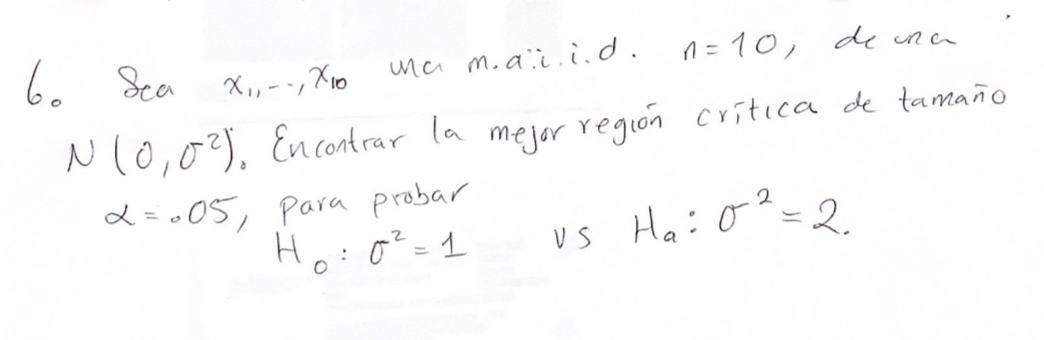 6. Sea x₁,--,x₁₀ una m.a.i.i.d. n=10, de una
N(0,σ²). Encontrar la mejor región crítica de tamaño
α=.05, para probar
H₀: σ²=1 vs Hₐ: σ²=2.